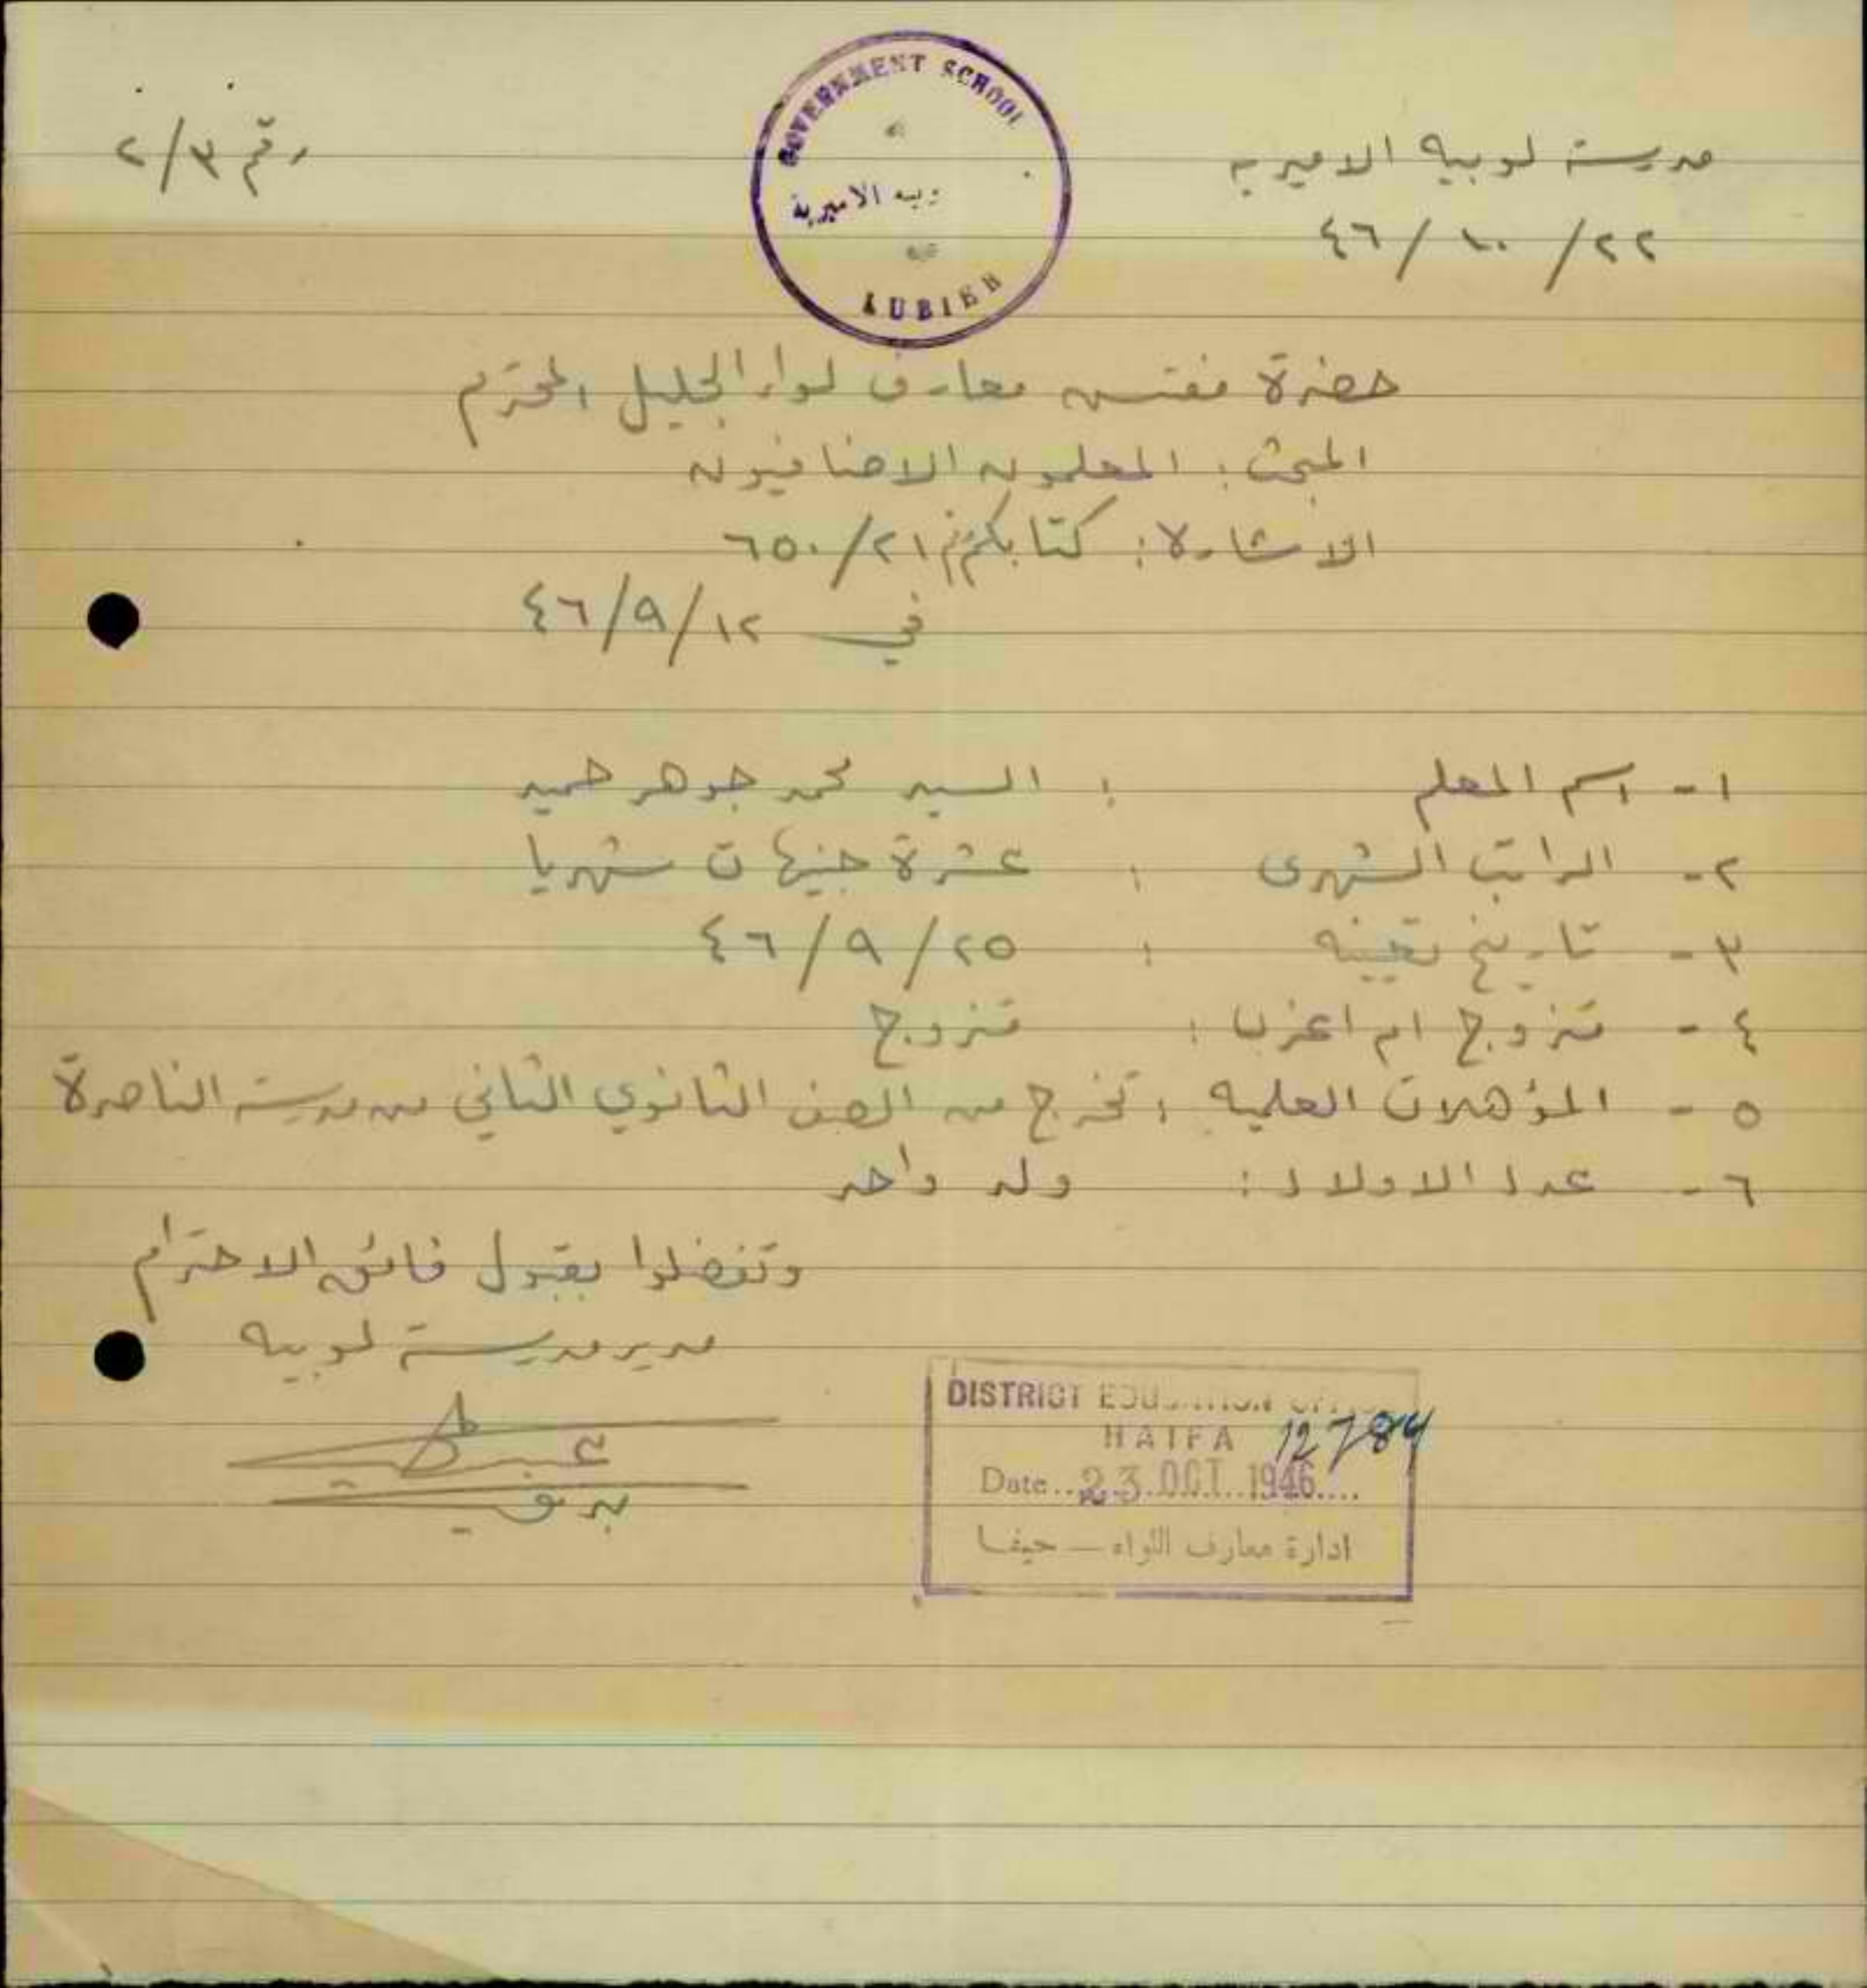 مدرسة لوبيه الاميريه
٢٢/ ١٠/ ٤٦
رقم ٢/٣
GOVERNMENT SCHOOL
وبيه الاميرية
LUBIEH
حضرة مفتش معارف لواء الجليل المحترم
المبحث: المعلمون الاضافيون
الاشارة: كتابكم رقم ٦٥٠/٢١
في ٤٦/٩/١٢
١- اسم المعلم : السيد محمد جوهر حميد
٢- الراتب الشهري : عشرة جنيهات شهريا
٣- تاريخ تعيينه : ٤٦/٩/٢٥
٤- متزوج ام اعزب : متزوج
٥- المؤهلات العلميه : تخرج من الصف الثانوي الثاني من مدرسة الناصرة
٦- عدد الاولاد : ولد واحد
وتفضلوا بقبول فائق الاحترام
مدير مدرسة لوبيه
DISTRICT EDUCATION OFFICE
HAIFA 12784
Date..23.OCT.1946....
ادارة معارف اللواء — حيفا